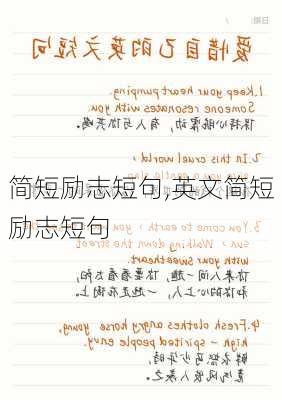 日期:
爱惜自己的英文短句
1.Keep your heart pumping.
Someone resonates with you.
保持心脏震动，有人与你共鸣。
2.In this cruel world,
简短励志短句,英文简短
励志短句
3.You come to earth, you
sun, Walking down the street
with your sweetheart.
你来人间一趟，你要看看太阳，
和你的心上人，一起走在街上。
4.Fresh clothes angry horse young,
high-spirited people envy.
鲜衣怒马少年时，
意气风发人羡之。